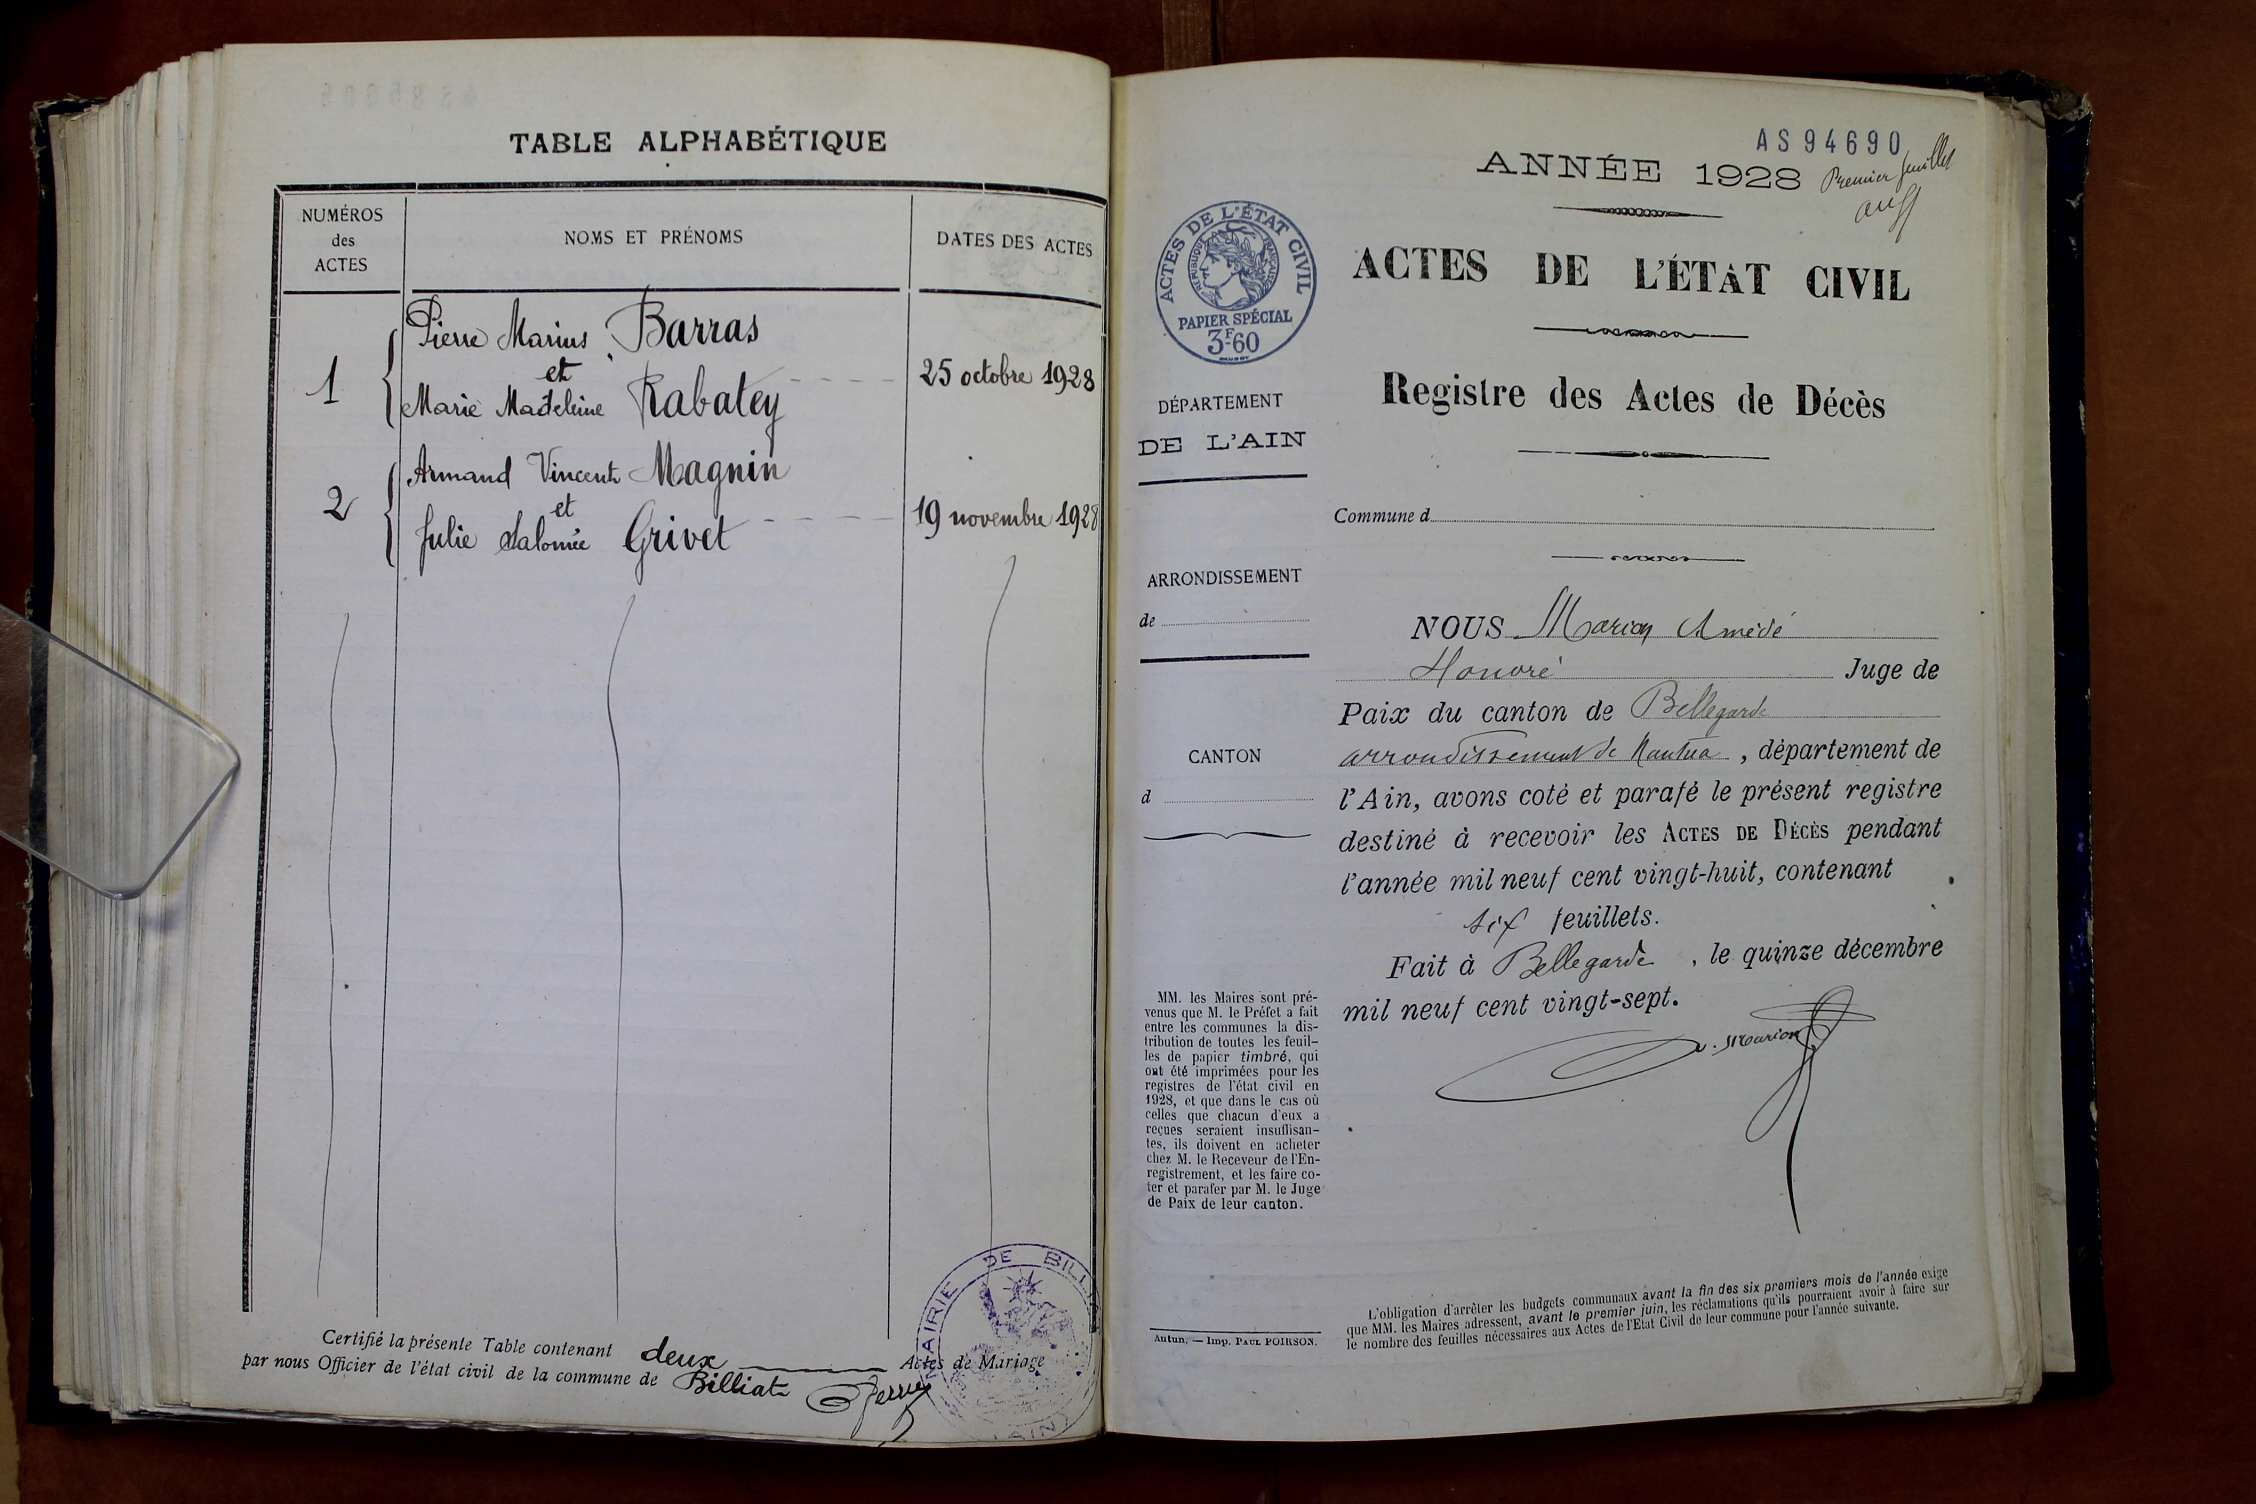 TABLE ALPHABÉTIQUE
NUMÉROS
des
ACTES
NOMS ET PRÉNOMS
DATES DES ACTES
Pierre Marius Barras
1 et 25 octobre 1928
Marie Madeleine Rabatey
Armand Vincent Magnin
2 et 19 novembre 1928
Julie Salomée Grivet
Certifié la présente Table contenant deux Actes de Mariage
par nous Officier de l'état civil de la commune de Billiat
MAIRIE DE BILL
(AIN)
AS 94690
ANNÉE 1928
Premier feuillet
ACTES DE L'ÉTAT CIVIL
RÉPUBLIQUE FRANÇAISE
PAPIER SPÉCIAL
3F-60
ACTES DE L'ÉTAT CIVIL
Registre des Actes de Décès
DÉPARTEMENT
DE L'AIN
Commune d
ARRONDISSEMENT
de
CANTON
d
NOUS Marion Amédé
Honoré Juge de
Paix du canton de Bellegarde
arrondissement de Nantua, département de
l'Ain, avons coté et parafé le présent registre
destiné à recevoir les ACTES DE DÉCÈS pendant
l'année mil neuf cent vingt-huit, contenant
six feuillets.
Fait à Bellegarde, le quinze décembre
mil neuf cent vingt-sept.
Marion
MM. les Maires sont pré-
venus que M. le Préfet a fait
entre les communes la dis-
tribution de toutes les feuil-
les de papier timbré, qui
ont été imprimées pour les
registres de l'état civil en
1928, et que dans le cas où
celles que chacun d'eux a
reçues seraient insuffisan-
tes, ils doivent en acheter
chez M. le Receveur de l'En-
registrement, et les faire co-
ter et parafer par M. le Juge
de Paix de leur canton.
Autun. — Imp. PAUL POIRSON.
L'obligation d'arrêter les budgets communaux avant la fin des six premiers mois de l'année exige
que MM. les Maires adressent, avant le premier juin, les réclamations qu'ils pourraient avoir à faire sur
le nombre des feuilles nécessaires aux Actes de l'Etat Civil de leur commune pour l'année suivante.